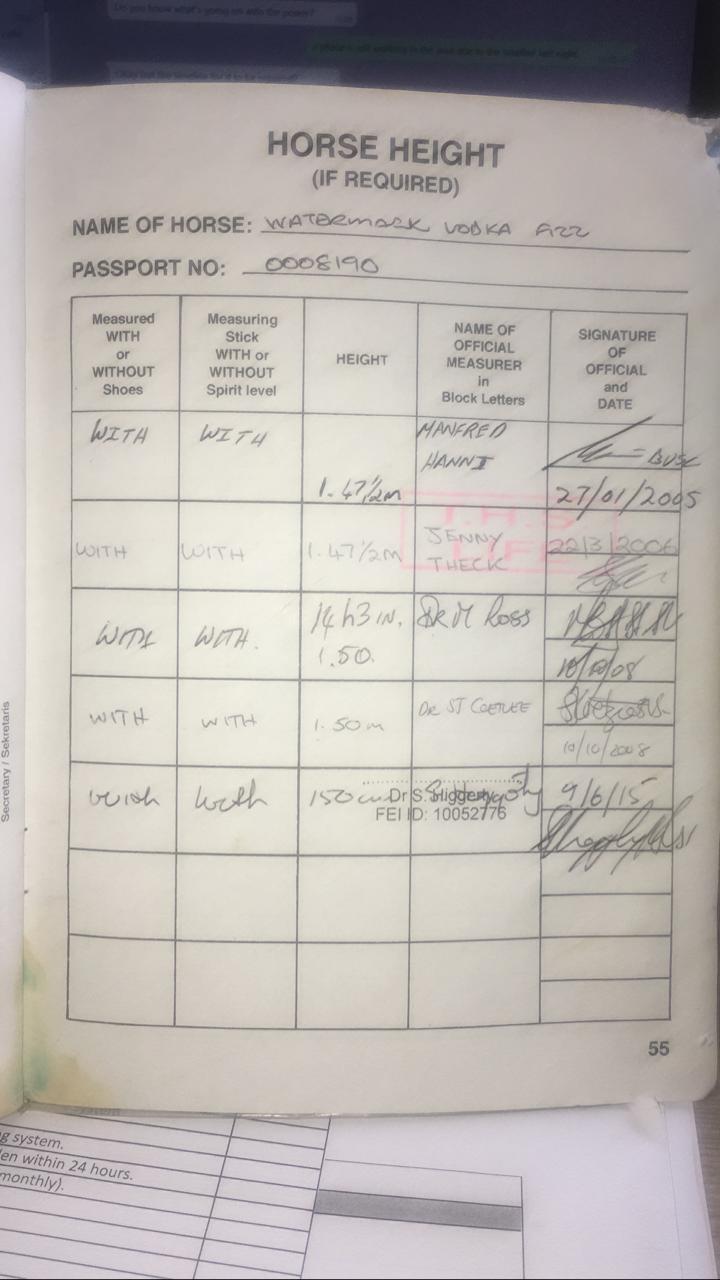 HORSE HEIGHT
(IF REQUIRED)
NAME OF HORSE: WATERMARK VODKA FIZZ
PASSPORT NO: 0008190
Measured
WITH
or
WITHOUT
Shoes
Measuring
Stick
WITH or
WITHOUT
Spirit level
HEIGHT
NAME OF
OFFICIAL
MEASURER
in
Block Letters
SIGNATURE
OF
OFFICIAL
and
DATE
WITH
WITH
1.47½m
MANFRED
HANNI
27/01/2005
WITH
WITH
1.47½m
JENNY
THECK
22/3/2006
WITH
WITH.
14h3 IN.
1.50.
DR M ROSS
10/10/08
WITH
WITH
1.50m
DR ST COETZEE
10/10/2008
With
With
150cm
Dr S. Sliggerty
FEI ID: 10052776
9/6/15
55
Secretary / Sekretaris
g system.
en within 24 hours.
monthly).